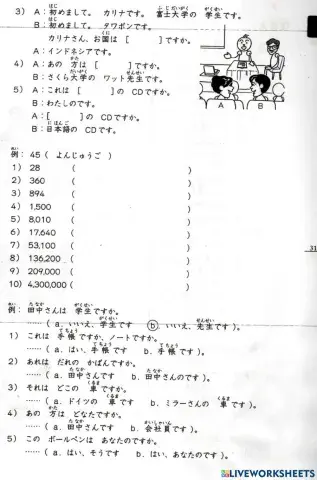 3) A：初めまして。 カリナです。 富士大学の 学生です。
B：初めまして。 タワポンです。
カリナさん、お国は [ ]ですか。
A：インドネシアです。
4) A：あの 方は [ ]ですか。
B：さくら大学の ワット先生です。
5) A：これは [ ]の CDですか。
B：わたしのです。
A：[ ]の CDですか。
B：日本語の CDです。
A B
例： 45 ( よんじゅうご )
1) 28 ( )
2) 360 ( )
3) 894 ( )
4) 1,500 ( )
5) 8,010 ( )
6) 17,640 ( )
7) 53,100 ( )
8) 136,200 ( )
9) 209,000 ( )
10) 4,300,000 ( )
31
例： 田中さんは 学生ですか。
…… ( a. いいえ、学生です b. いいえ、先生です )。
1) これは 手帳ですか、ノートですか。
…… ( a. はい、手帳です b. 手帳です )。
2) あれは だれの かばんですか。
…… ( a. 田中さんです b. 田中さんのです )。
3) それは どこの 車ですか。
…… ( a. ドイツの 車です b. ミラーさんの 車です )。
4) あの 方は どなたですか。
…… ( a. 田中さんです b. 会社員です )。
5) この ボールペンは あなたのですか。
…… ( a. はい、そうです b. はい、あなたのです )。
LIVEWORKSHEETS